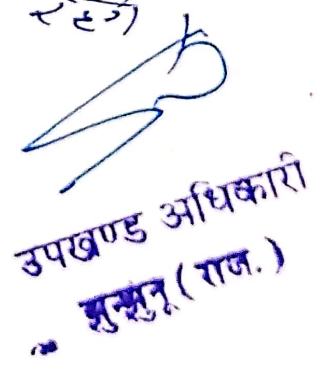 रहेगा
उपखण्ड अधिकारी
झुन्झुनू (राज.)